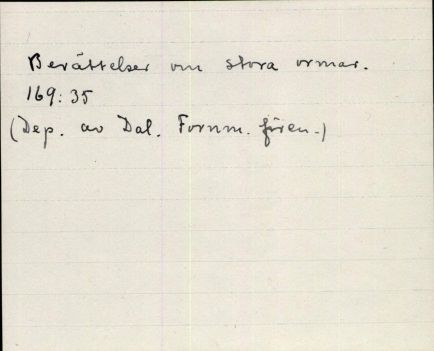 Berättelser om stora ormar.
169:35
(Dep. av Dal. Fornm. fören.)